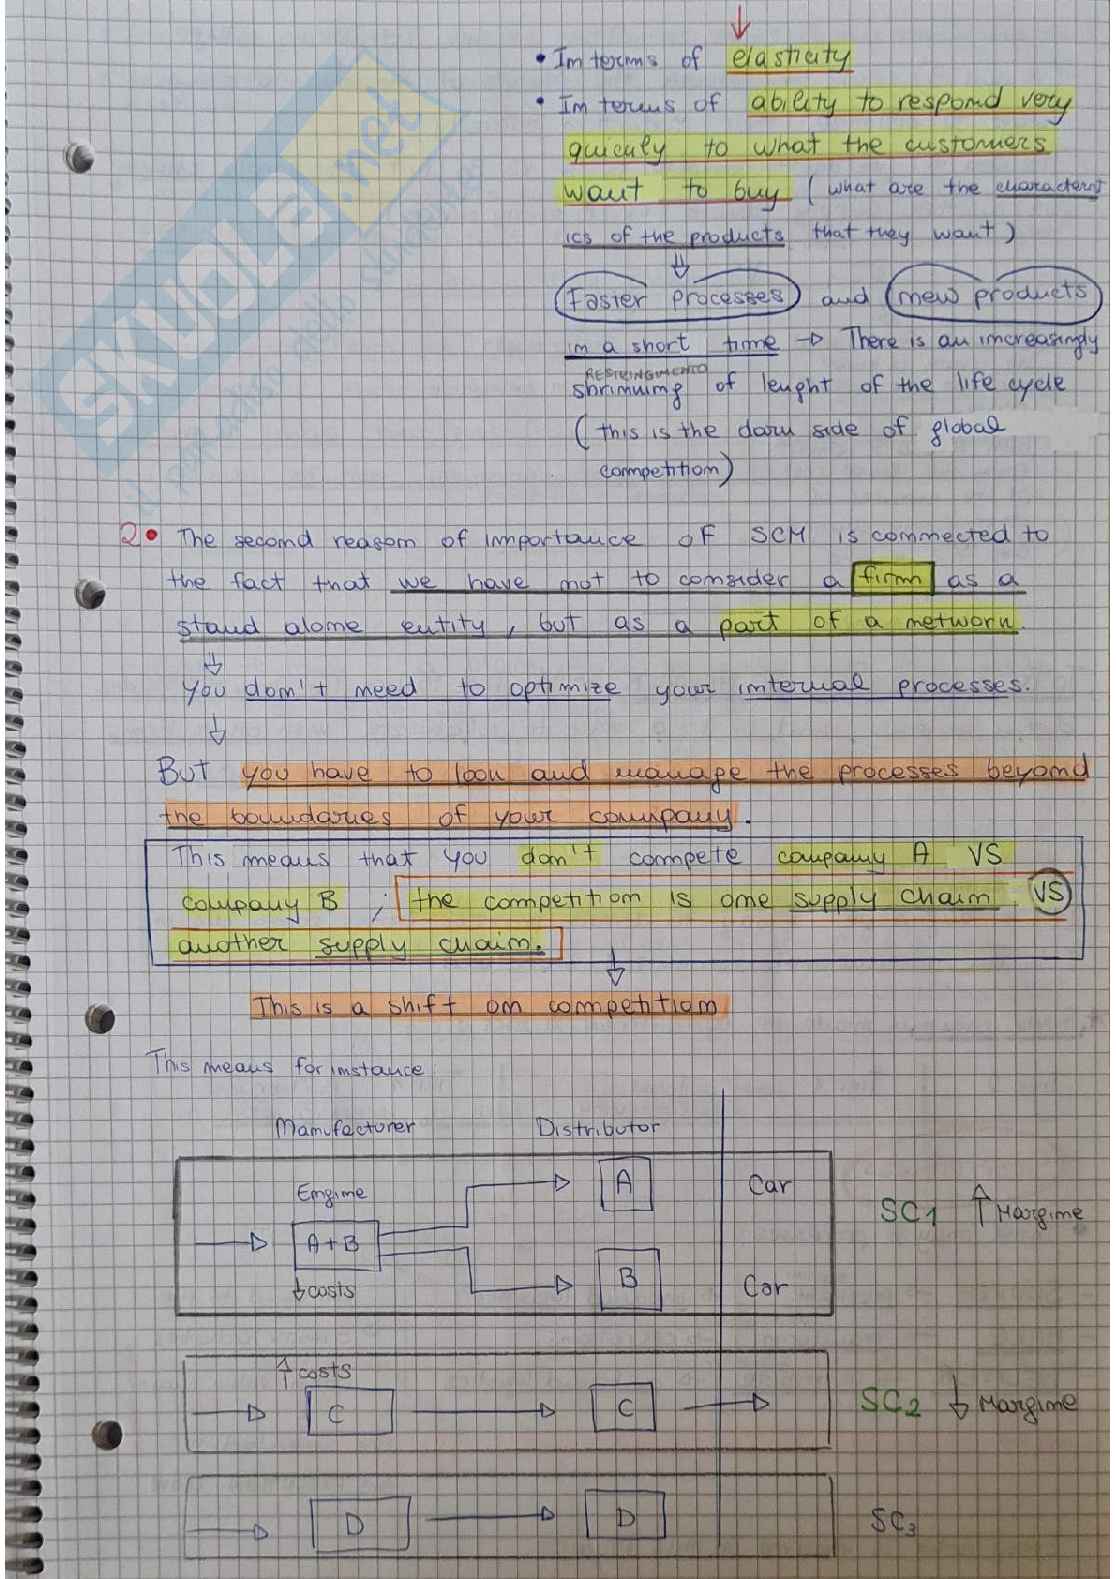 • In terms of elasticity
• In terms of ability to respond very
quickly to what the customers
want to buy (what are the characterist
ics of the products that they want)
Faster processes and new products
in a short time → There is an increasingly
RESTRINGIMENTO
shrinking of lenght of the life cycle
(this is the dark side of global
competition)
2• The second reason of importance of SCM is connected to
the fact that we have not to consider a firm as a
stand alone entity, but as a part of a network.
You don't need to optimize your internal processes.
But you have to look and manage the processes beyond
the boundaries of your company.
This means that you don't compete company A VS
company B, the competition is one supply chain VS
another supply chain.
This is a shift on competition
This means for instance
Manufacturer Distributor
Engine A Car
A+B SC1 ↑ Margine
↓ costs B Car
↑ costs
C C SC2 ↓ Margine
D D SC3
SKUOLA.net